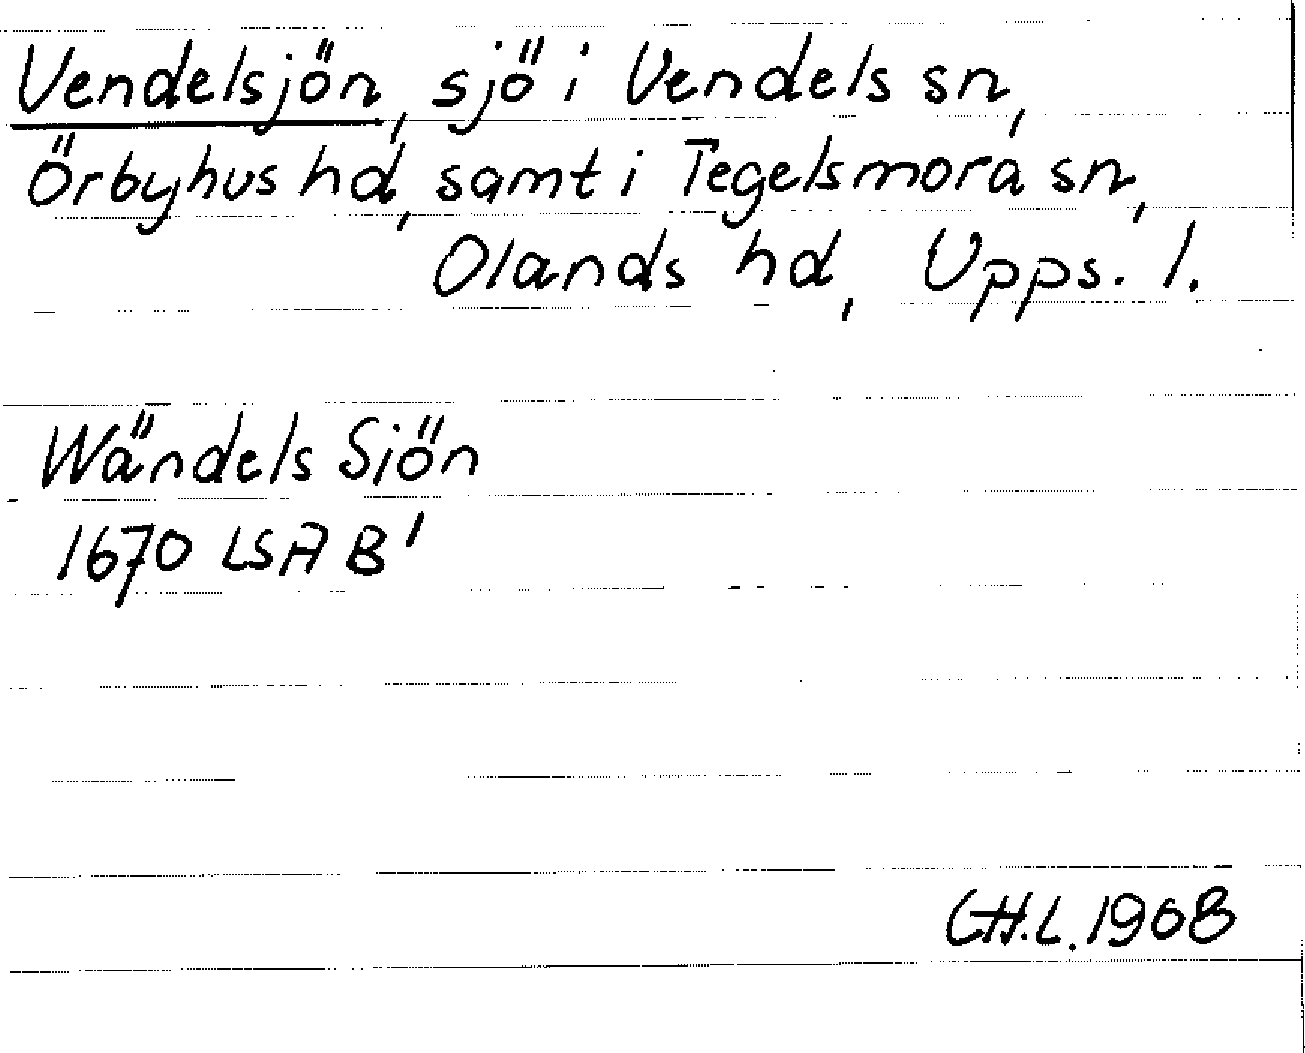 Vendelsjön, sjö i Vendels sn,
Örbyhus hd, samt i Tegelsmora sn,
Olands hd, Upps. l.
Wändels Siön
1670 LSA B 1
C.H.L. 1908